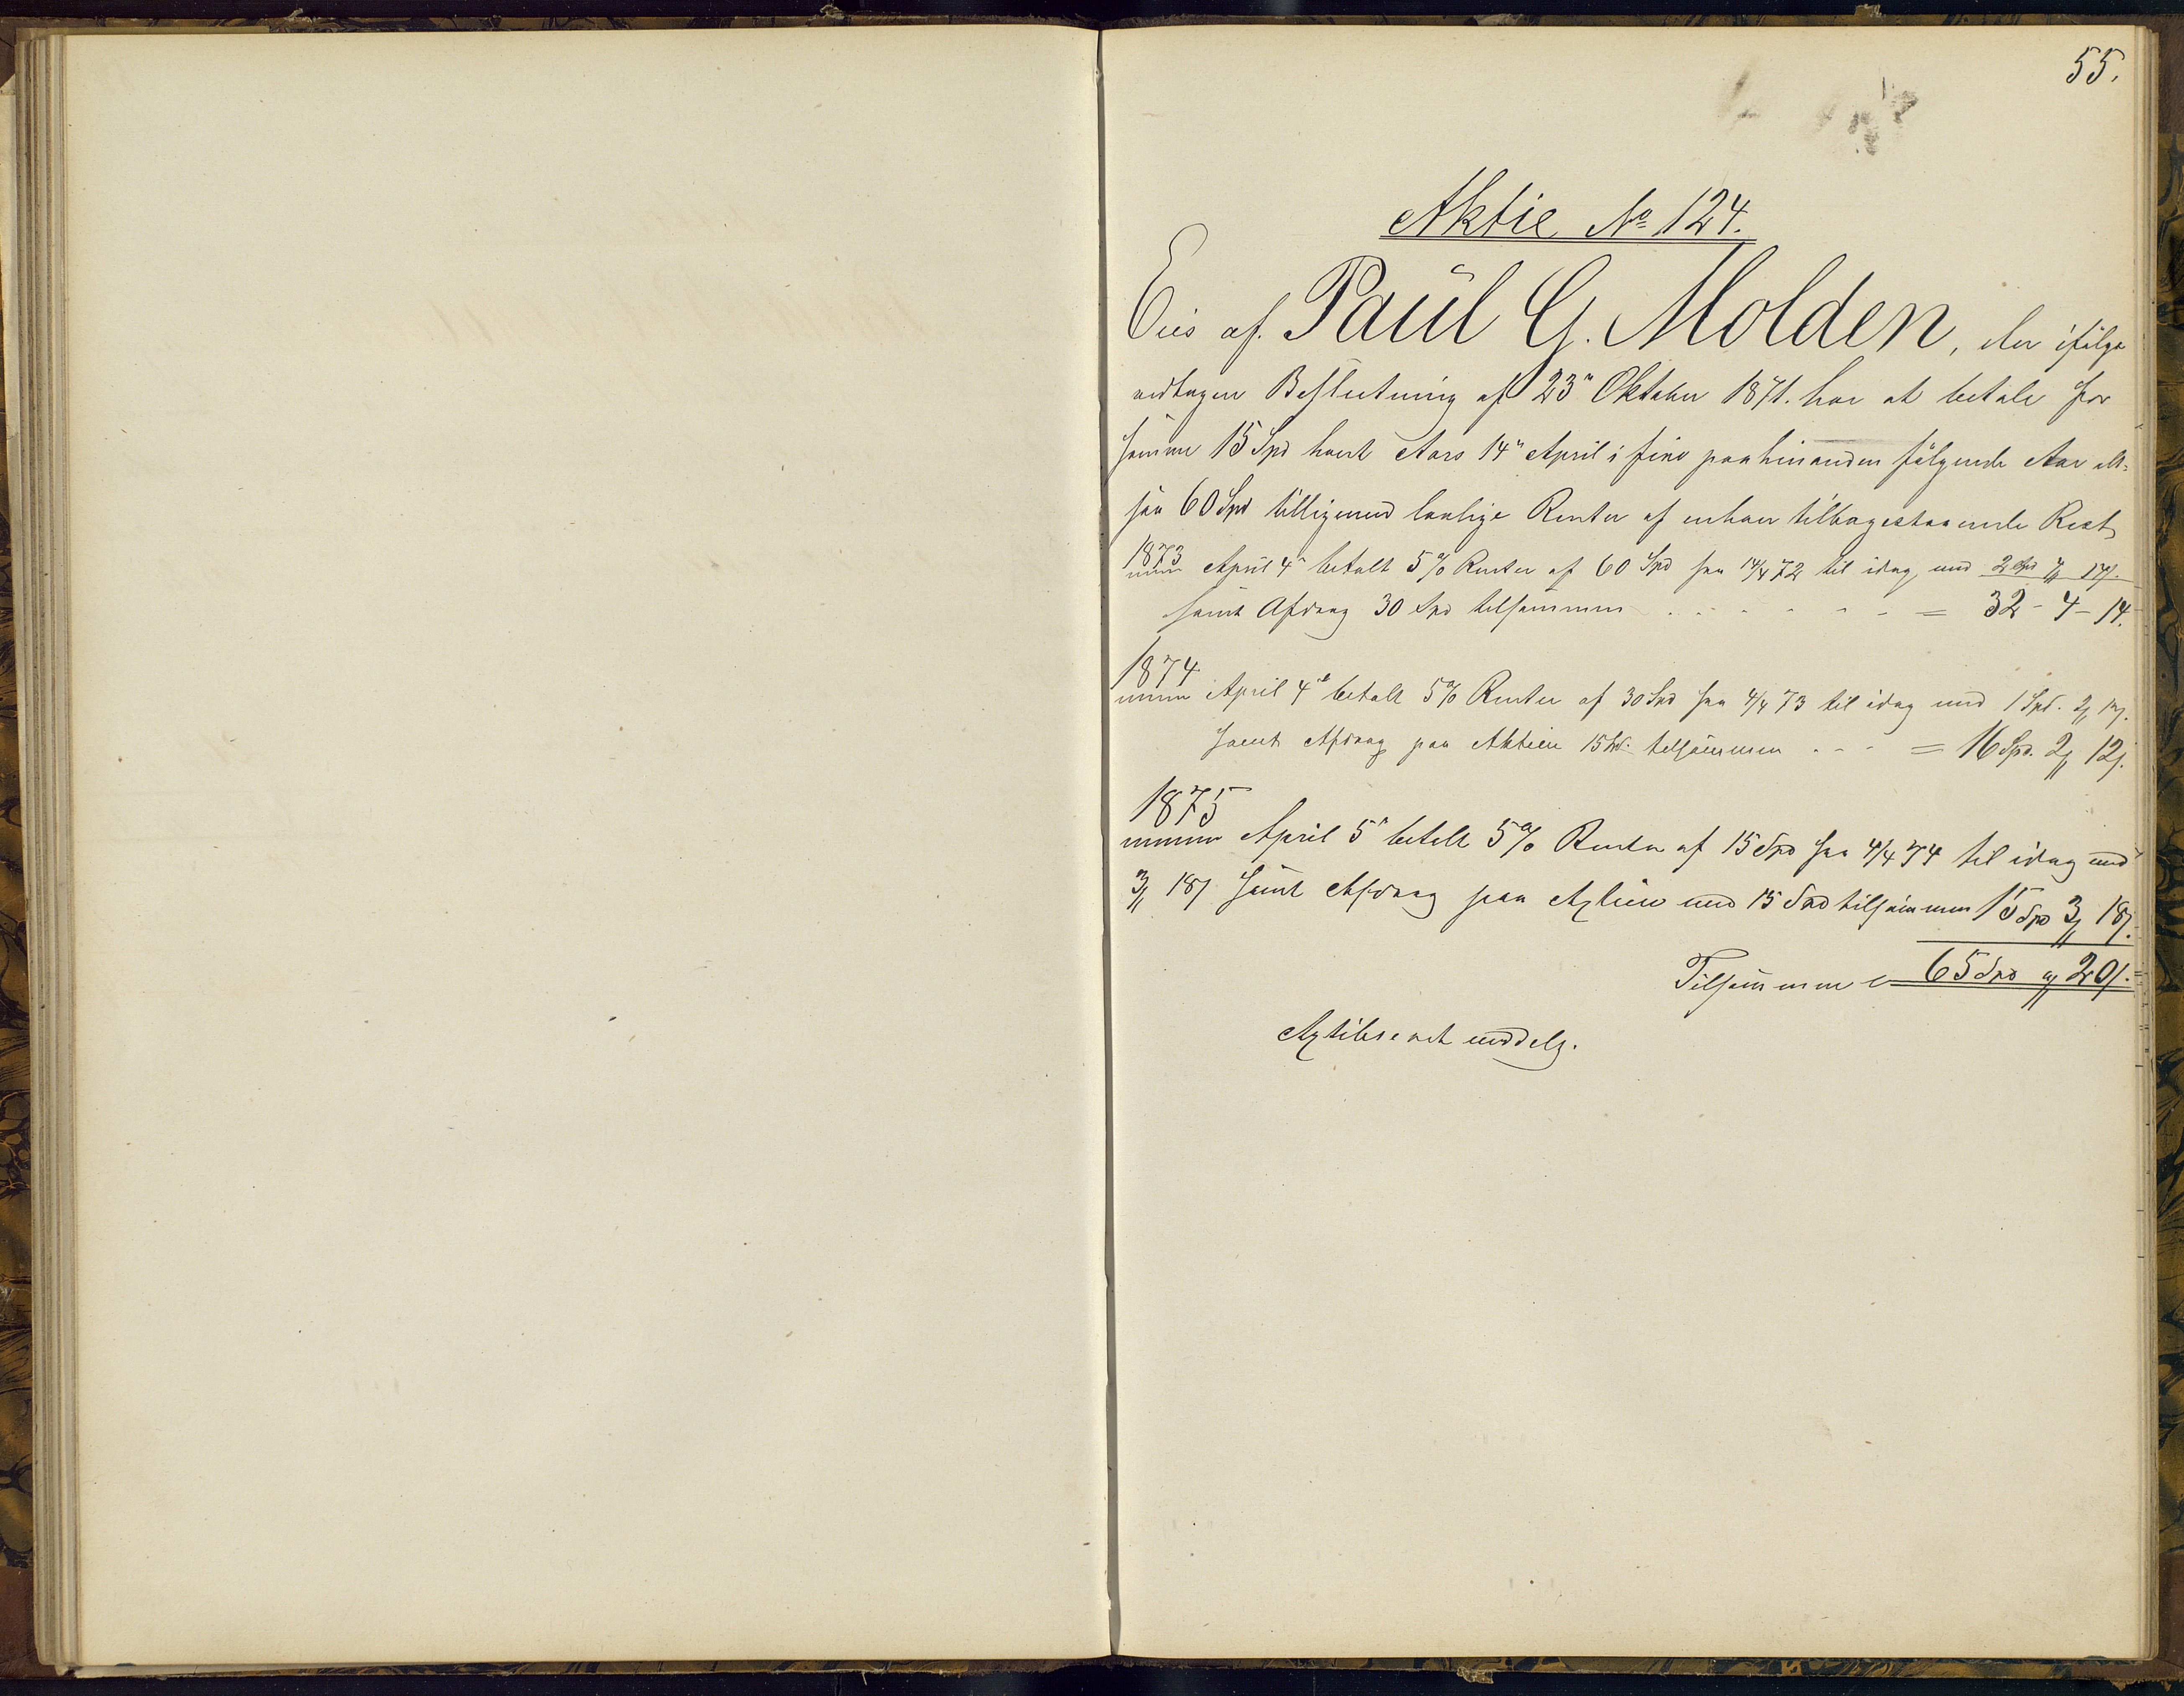 55.
Aktie No 124.
Eies af Paul G. Molden, der ifølge
vedtagen Beslutning af 23" Oktober 1871. har at betale for
samme 15 Spd hvert Aars 14" April i fire paahinanden følgende Aar alt=
saa 60 Spd tilligemed lovlige Renter af enhver tilbagestaaende Rest
1873
April 4" betalt 5% Renter af 60 Spd fra 14/4 72 til idag med 2 Spd 4 14
samt Afdrag 30 Spd tilsammen . . . . . . . = 32 - 4 - 14.
1874
April 4de betalt 5% Renter af 30 Spd fra 4/4 73 til idag med 1 Spd. 2 12
samt Afdrag paa Aktien 15 Spd. tilsammen . . . = 16 Spd. 2 12
1875
April 5" betalt 5% Renter af 15 Spd fra 4/4 74 til idag med
3 18 samt Afdrag paa Axtien med 15 Spd tilsammen 15 Spd 3 18
Tilsammen 65 Spd 20
meddelt.